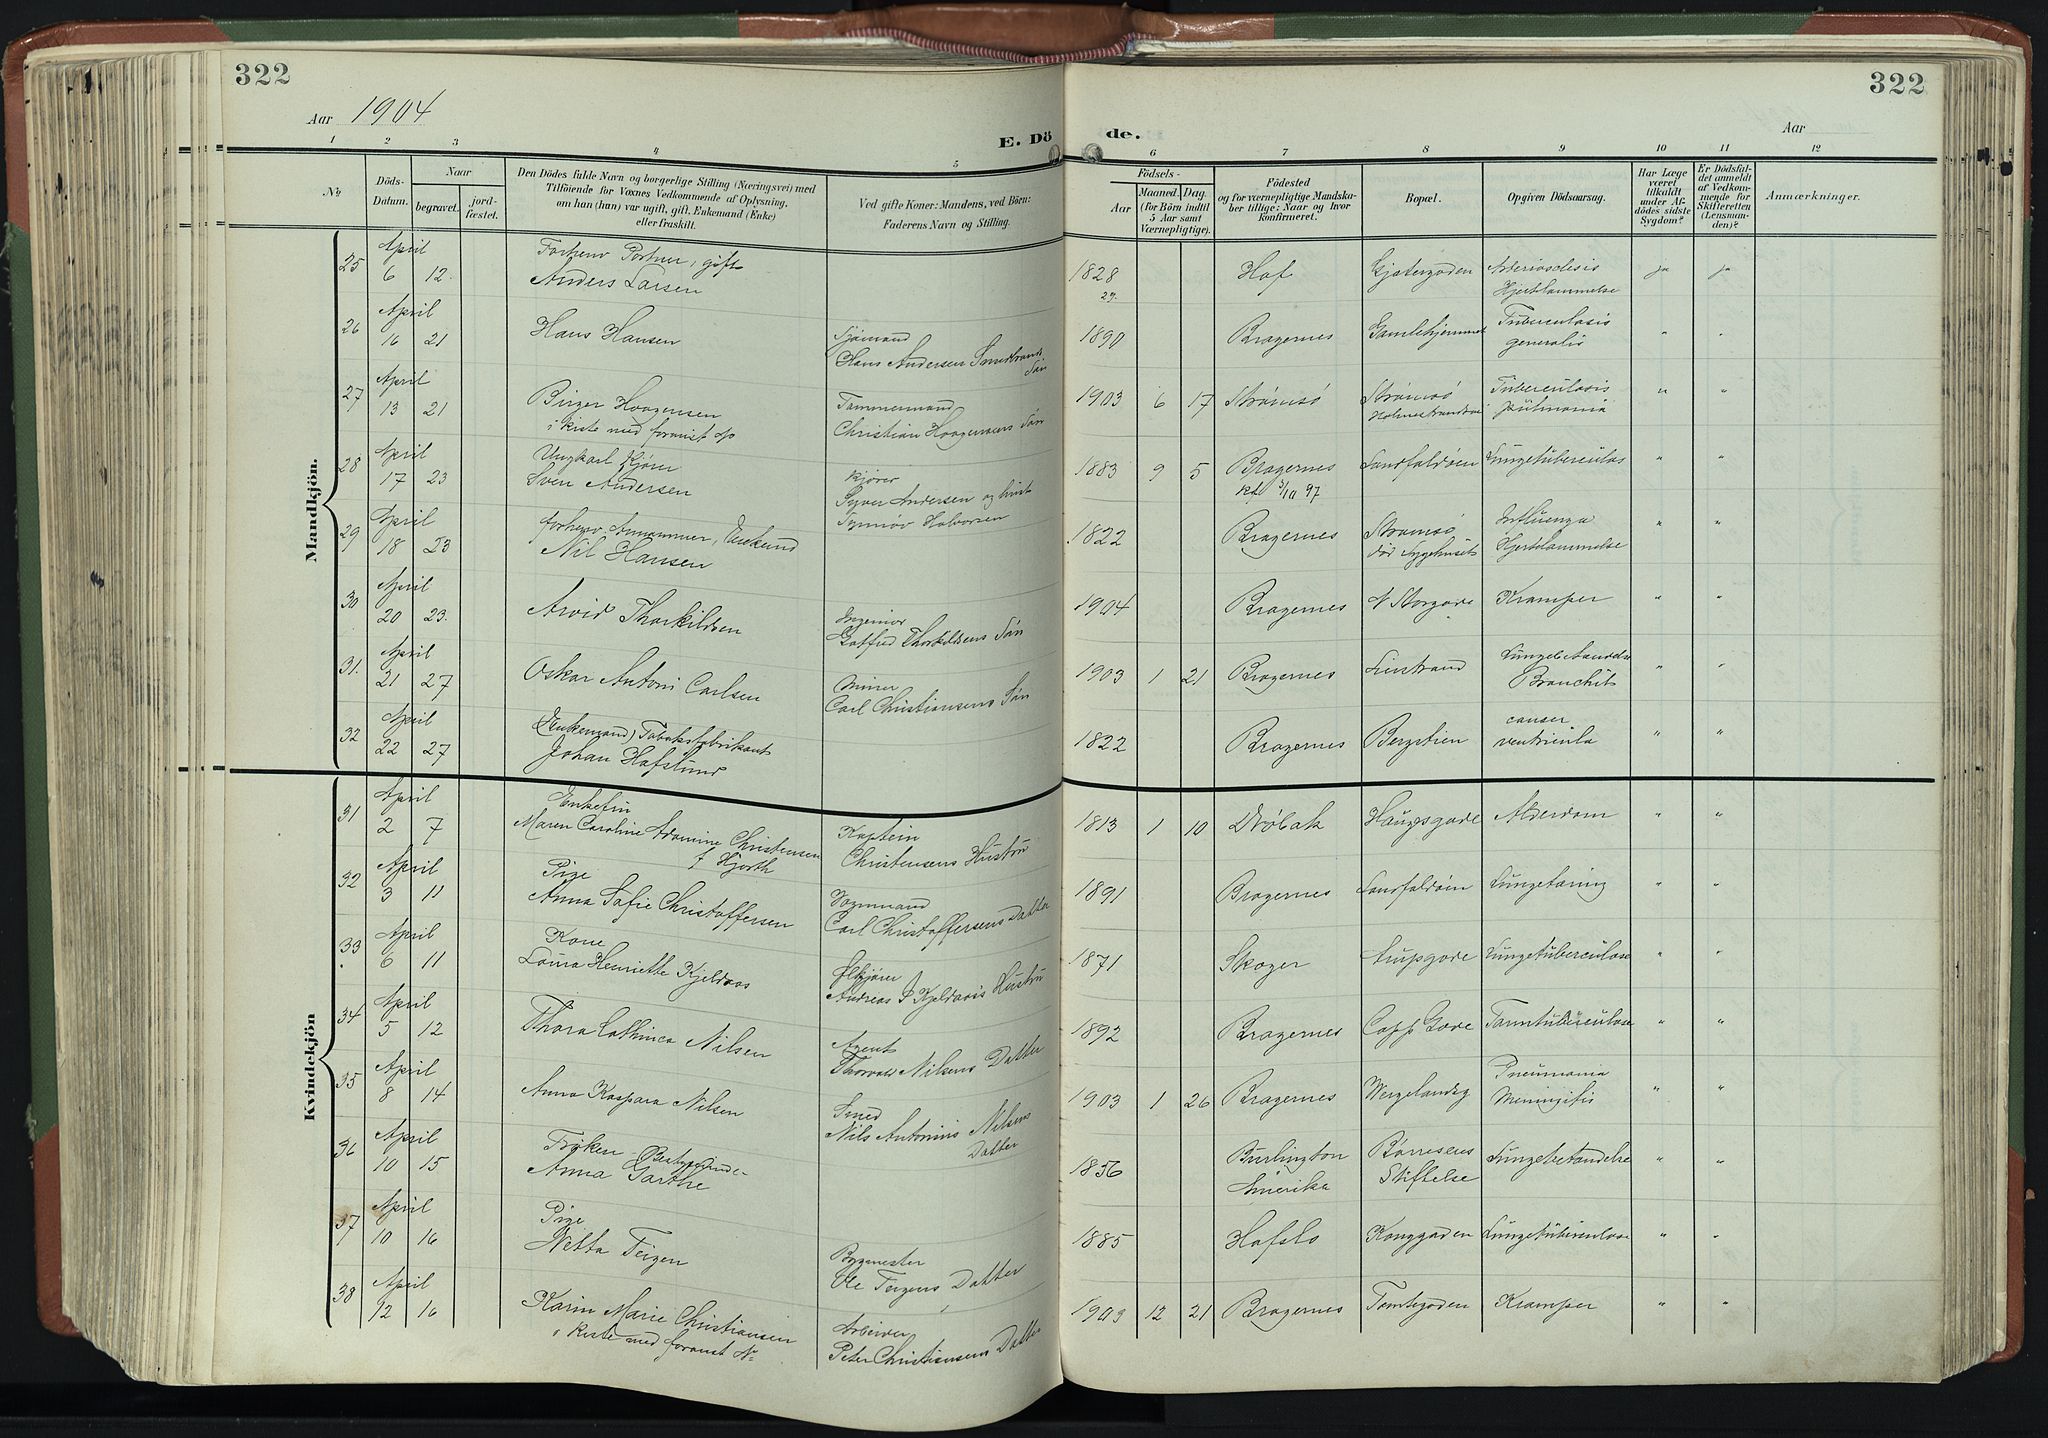 322
322
Aar 1904
Aar
E. Dö
de.
1 2 3 4 5 6 7 8 9 10 11 12
No
Döds-
Datum.
Naar
begravet.
jord-
fæstet.
Den Dödes fulde Navn og borgerlige Stilling (Næringsvei) med
Tilföiende for Voxnes Vedkommende af Oplysning,
om han (hun) var ugift, gift, Enkemand (Enke)
eller fraskilt.
Ved gifte Koner: Mandens, ved Börn:
Faderens Navn og Stilling.
Födsels-
Aar
Maaned. Dag.
(for Börn indtil
5 Aar samt
Værnepligtige).
Födested
og for værnepligtige Mandska-
ber tillige: Naar og hvor
konfirmeret.
Bopæl.
Opgiven Dödsaarsag.
Har Læge
været
tilkaldt
under Af-
dödes sidste
Sygdom?
Er Dödsfal-
det anmeldt
af Vedkom-
mende for
Skifteretten
(Lensman-
den)?
Anmærkninger.
Mandkjön.
25 April 6 12. Portner, gift
Anders Larsen
1828 Hof ja ja
29.
Hjertelammelse
26 April 16 21 Hans Hansen
Sjömand
Hans Andersen
Sön
1890 Bragernes Gamlehjemmet Tuberculosis
generalis " "
27 April 13 21 Birger Haagensen
i kiste med foranst No
Tømmermand
Christian Haagensens Sön
1903 6 17 Strömsö Strömsö Tuberculosis
Holmestrandsvei pulmonia " "
28 April 17 23 Ungkarl Kjører
Sven Andersen
Kjører
Syver Andersen og Hust
Synnöv Halvorsen
1883 9 5 Bragernes Landfaldöen Lungetuberculos " "
kf. 3/10 97
29 April 18 23
Nil Hansen
1822 Bragernes Strömsö Influenza
Sygehuset Hjertelammelse " "
30 April 20 23. Arvid Thorkildsen
Ingeniör
Gotfred Thorkildsens Sön
1904 Bragernes N Storgade Kramper " "
31. April 21 27 Oskar Antoni Carlsen
Minør
Carl Christiansens Sön
1903 1 21 Bragernes Lierstrand Lungebetændelse
Bronchit " "
32 April 22 27 (Enkemand) Tobaksfabrikant
Johan Hafslund
1822 Bragernes Bergstien cancer
ventricula " "
Kvindekjön
31 April 2 7 Enkefru
Maren Caroline Abramine Christensen
f Hjorth
Kaptein
Christensens Hustru
1813 1 10 Dröbak Haugesgade Alderdom " "
32 April 3 11 Pige
Anna Sofie Christoffersen
Vognmand
Carl Christoffersens Datter
1891 Bragernes Landfaldöen Lungetæring " "
33 April 6 11 Kone
Laura Henriette Kjeldaas
Ölkjører
Andreas P Kjeldaas's Hustru
1871 Skoger Arupgade Lungetuberculose " "
34 April 5 12 Thora Cathinca Nilsen
Agent
Thorvald Nilsens Datter
1892 Bragernes Capp Gade Tarmtuberculose " "
35 April 8 14 Anna Kaspara Nilsen
Smed
Nils Antonius Nilsens
Datter
1903 1 26 Bragernes Wergelandsg Pneumonia
Meningitis " "
36 April 10 15 Fröken Bestyrerinde
Anna Garthe
1856 Burlington Börresens Lungebetændelse " "
Amerika Stiftelse
37 April 10 16 Pige
Netta Teigen
Bygmester
Ole Teigens Datter
1885 Hafslo Konggaden Lungetuberculose " "
38 April 12 16 Karin Marie Christiansen
i kiste med foranst No
Arbeider
Peter Christiansens Datter
1903 12 21 Bragernes Tomtegaden Kramper " "